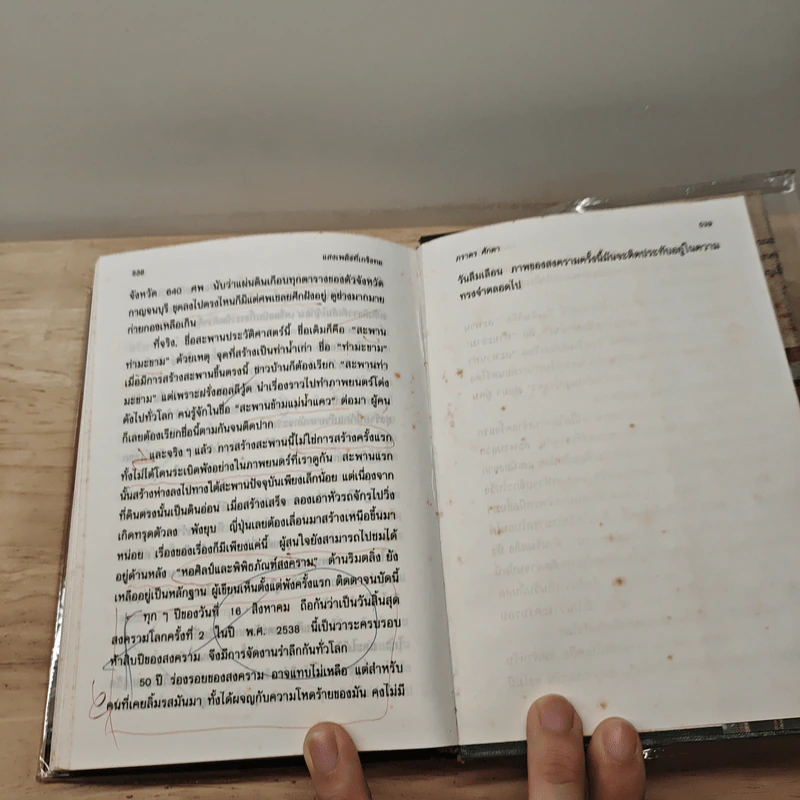 538
แสงเพลิงที่เกริงทอ
จังหวัด 640 ศพ นับว่าแผ่นดินเกือบทุกตารางของตัวจังหวัด
กาญจนบุรี ขุดลงไปตรงไหนก็มีแต่ศพเชลยศึกฝังอยู่ ดูช่างมากมาย
ก่ายกองเหลือเกิน
ที่จริง ชื่อสะพานประวัติศาสตร์นี้ ชื่อเดิมก็คือ "สะพาน
ท่ามะขาม" ด้วยเหตุ จุดที่สร้างเป็นท่าน้ำเก่า ชื่อ "ท่ามะขาม"
เมื่อมีการสร้างสะพานขึ้นตรงนี้ ชาวบ้านก็ต้องเรียก "สะพานท่า
มะขาม" แต่เพราะฝรั่งฮอลลีวู้ด นำเรื่องราวไปทำภาพยนตร์โด่ง
ดังไปทั่วโลก คนรู้จักในชื่อ "สะพานข้ามแม่น้ำแคว" ต่อมา ผู้คน
ก็เลยต้องเรียกชื่อนี้ตามกันจนติดปาก
และจริง ๆ แล้ว การสร้างสะพานนี้ไม่ใช่การสร้างครั้งแรก
ทั้งไม่ได้โดนระเบิดพังอย่างในภาพยนตร์ที่เราดูกัน สะพานแรก
นั้นสร้างห่างลงไปทางใต้สะพานปัจจุบันเพียงเล็กน้อย แต่เนื่องจาก
ที่ดินตรงนั้นเป็นดินอ่อน เมื่อสร้างเสร็จ ลองเอาหัวรถจักรไปวิ่ง
เกิดทรุดตัวลง พังยุบ ญี่ปุ่นเลยต้องเลื่อนมาสร้างเหนือขึ้นมา
หน่อย เรื่องของเรื่องก็มีเพียงแค่นี้ ผู้สนใจยังสามารถไปชมได้
อยู่ด้านหลัง "หอศิลป์และพิพิธภัณฑ์สงคราม" ด้านริมตลิ่ง ยัง
เหลืออยู่เป็นหลักฐาน ผู้เขียนเห็นตั้งแต่พังครั้งแรก ติดตาจนบัดนี้
ทุก ๆ ปีของวันที่ 16 สิงหาคม ถือกันว่าเป็นวันสิ้นสุด
สงครามโลกครั้งที่ 2 ในปี พ.ศ. 2538 นี้เป็นวาระครบรอบ
ห้าสิบปีของสงคราม จึงมีการจัดงานรำลึกกันทั่วโลก
50 ปี ร่องรอยของสงคราม อาจแทบไม่เหลือ แต่สำหรับ
คนที่เคยลิ้มรสมันมา ทั้งได้ผจญกับความโหดร้ายของมัน คงไม่มี
ภราดร ศักดา
539
วันลืมเลือน ภาพของสงครามครั้งนี้มันจะติดประทับอยู่ในความ
ทรงจำตลอดไป